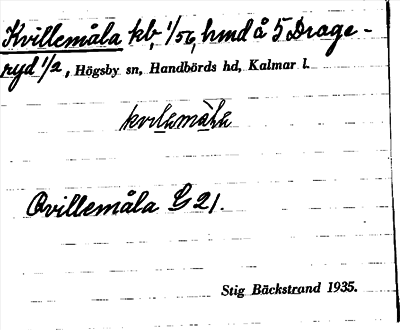 Kvillemåla kb, 1/56, hmd å 5 Drage-
ryd 1/2, Högsby sn, Handbörds hd, Kalmar l.
Qvillemåla G 21.
Stig Bäckstrand 1935.